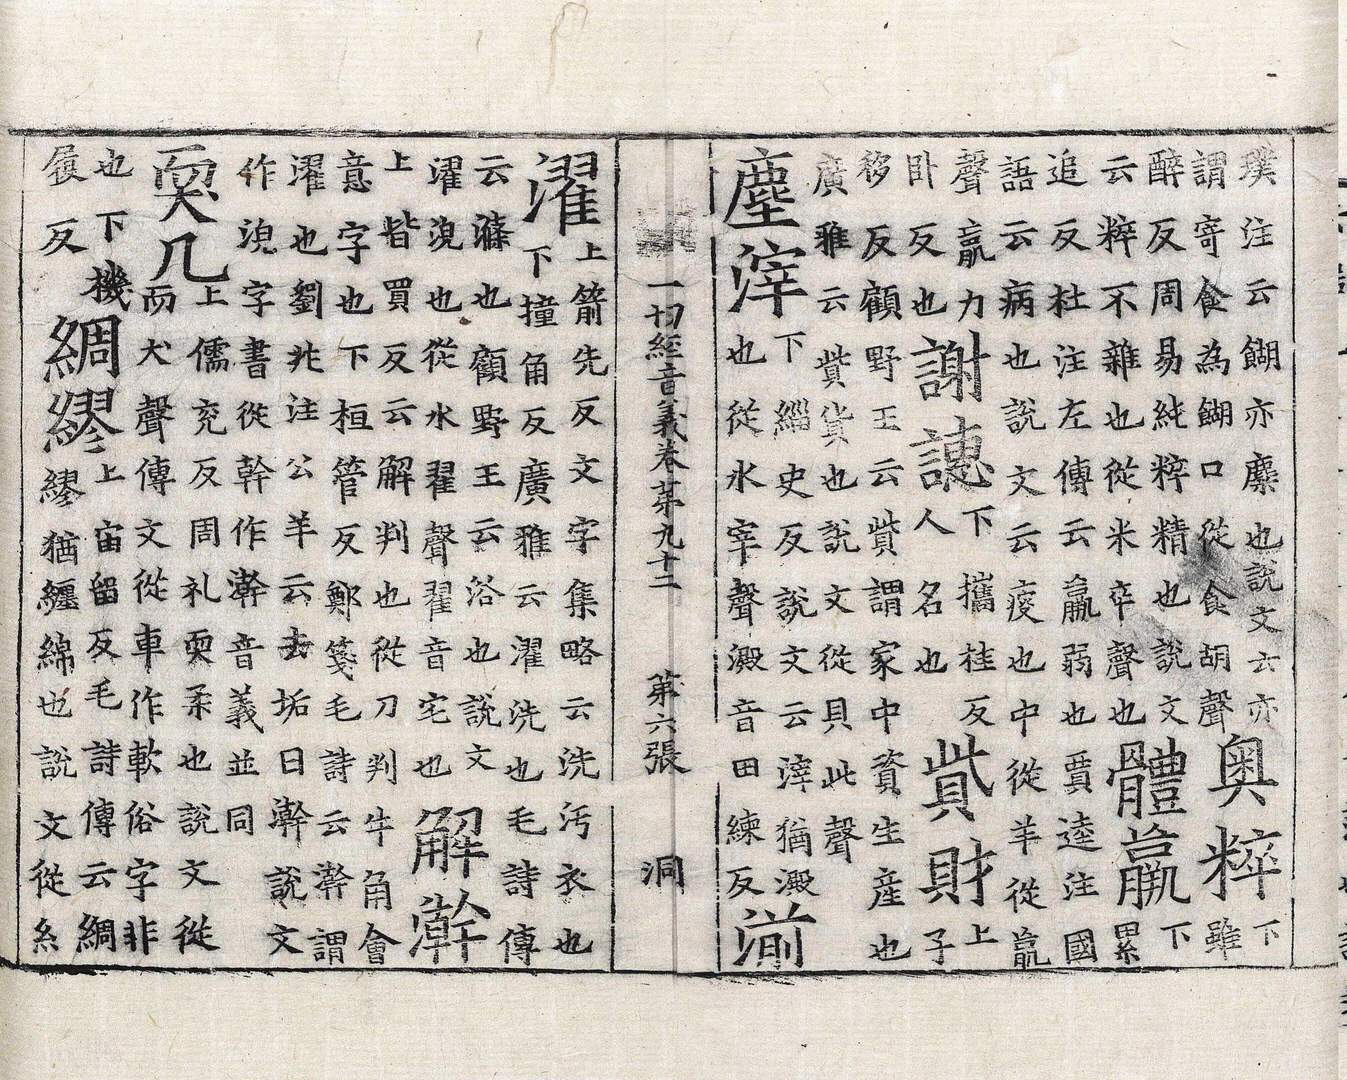 璞注云餬亦麋也說文云亦
謂寄食為餬口從食胡聲
奧粹
下
雖
醉反周易純粹精也說文
云粹不雜也從米卒聲也
體羸
下
累
追反杜注左傳云羸弱也賈逵注國
語云病也說文云疫也中從羊從羸
聲羸力
卧反也
謝譓
下攜桂反
人名也
貲財
上
子
移反顧野王云貲謂家中資生產也
廣雅云貲貨也說文從貝此聲
塵滓
下緇史反說文云滓猶澱
也從水宰聲澱音田練反
湔
一切經音義卷第九十二 第六張 洞
濯
上箭先反文字集略云洗污衣也
下撞角反廣雅云濯洗也毛詩傳
云滌也顧野王云浴也說文
濯浣也從水翟聲翟音宅也
解澣
上皆買反云解判也從刀判牛角會
意字也下桓管反鄭箋毛詩云澣謂
濯也劉兆注公羊云去垢曰澣說文
作浣字書從幹作澣音義並同
耎几
上儒兖反周礼耎柔也說文從
而犬聲傳文從車作軟俗字非
也下機
履反
綢繆
上宙留反毛詩傳云綢
繆猶纏綿也說文從糸